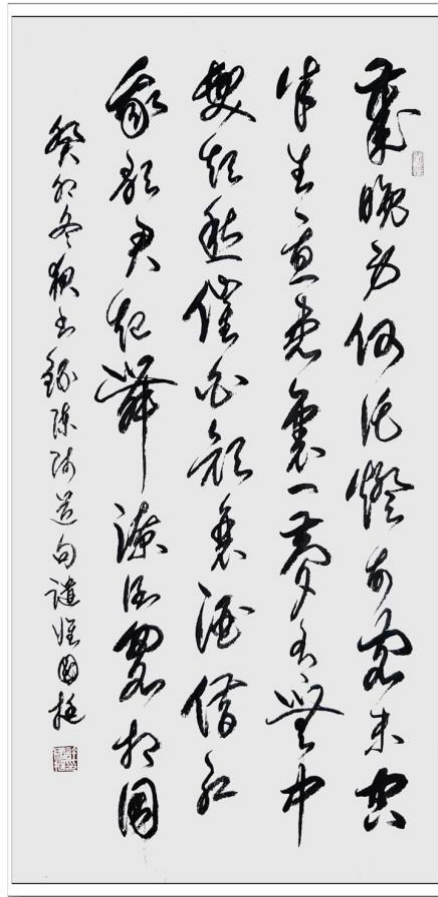 歲晚身何托燈前客未空
半生憂患裏一夢有無中
髮短愁催白顏衰酒借紅
我歌君起舞潦倒略相同
癸卯冬夜書錄陳師道句國挺